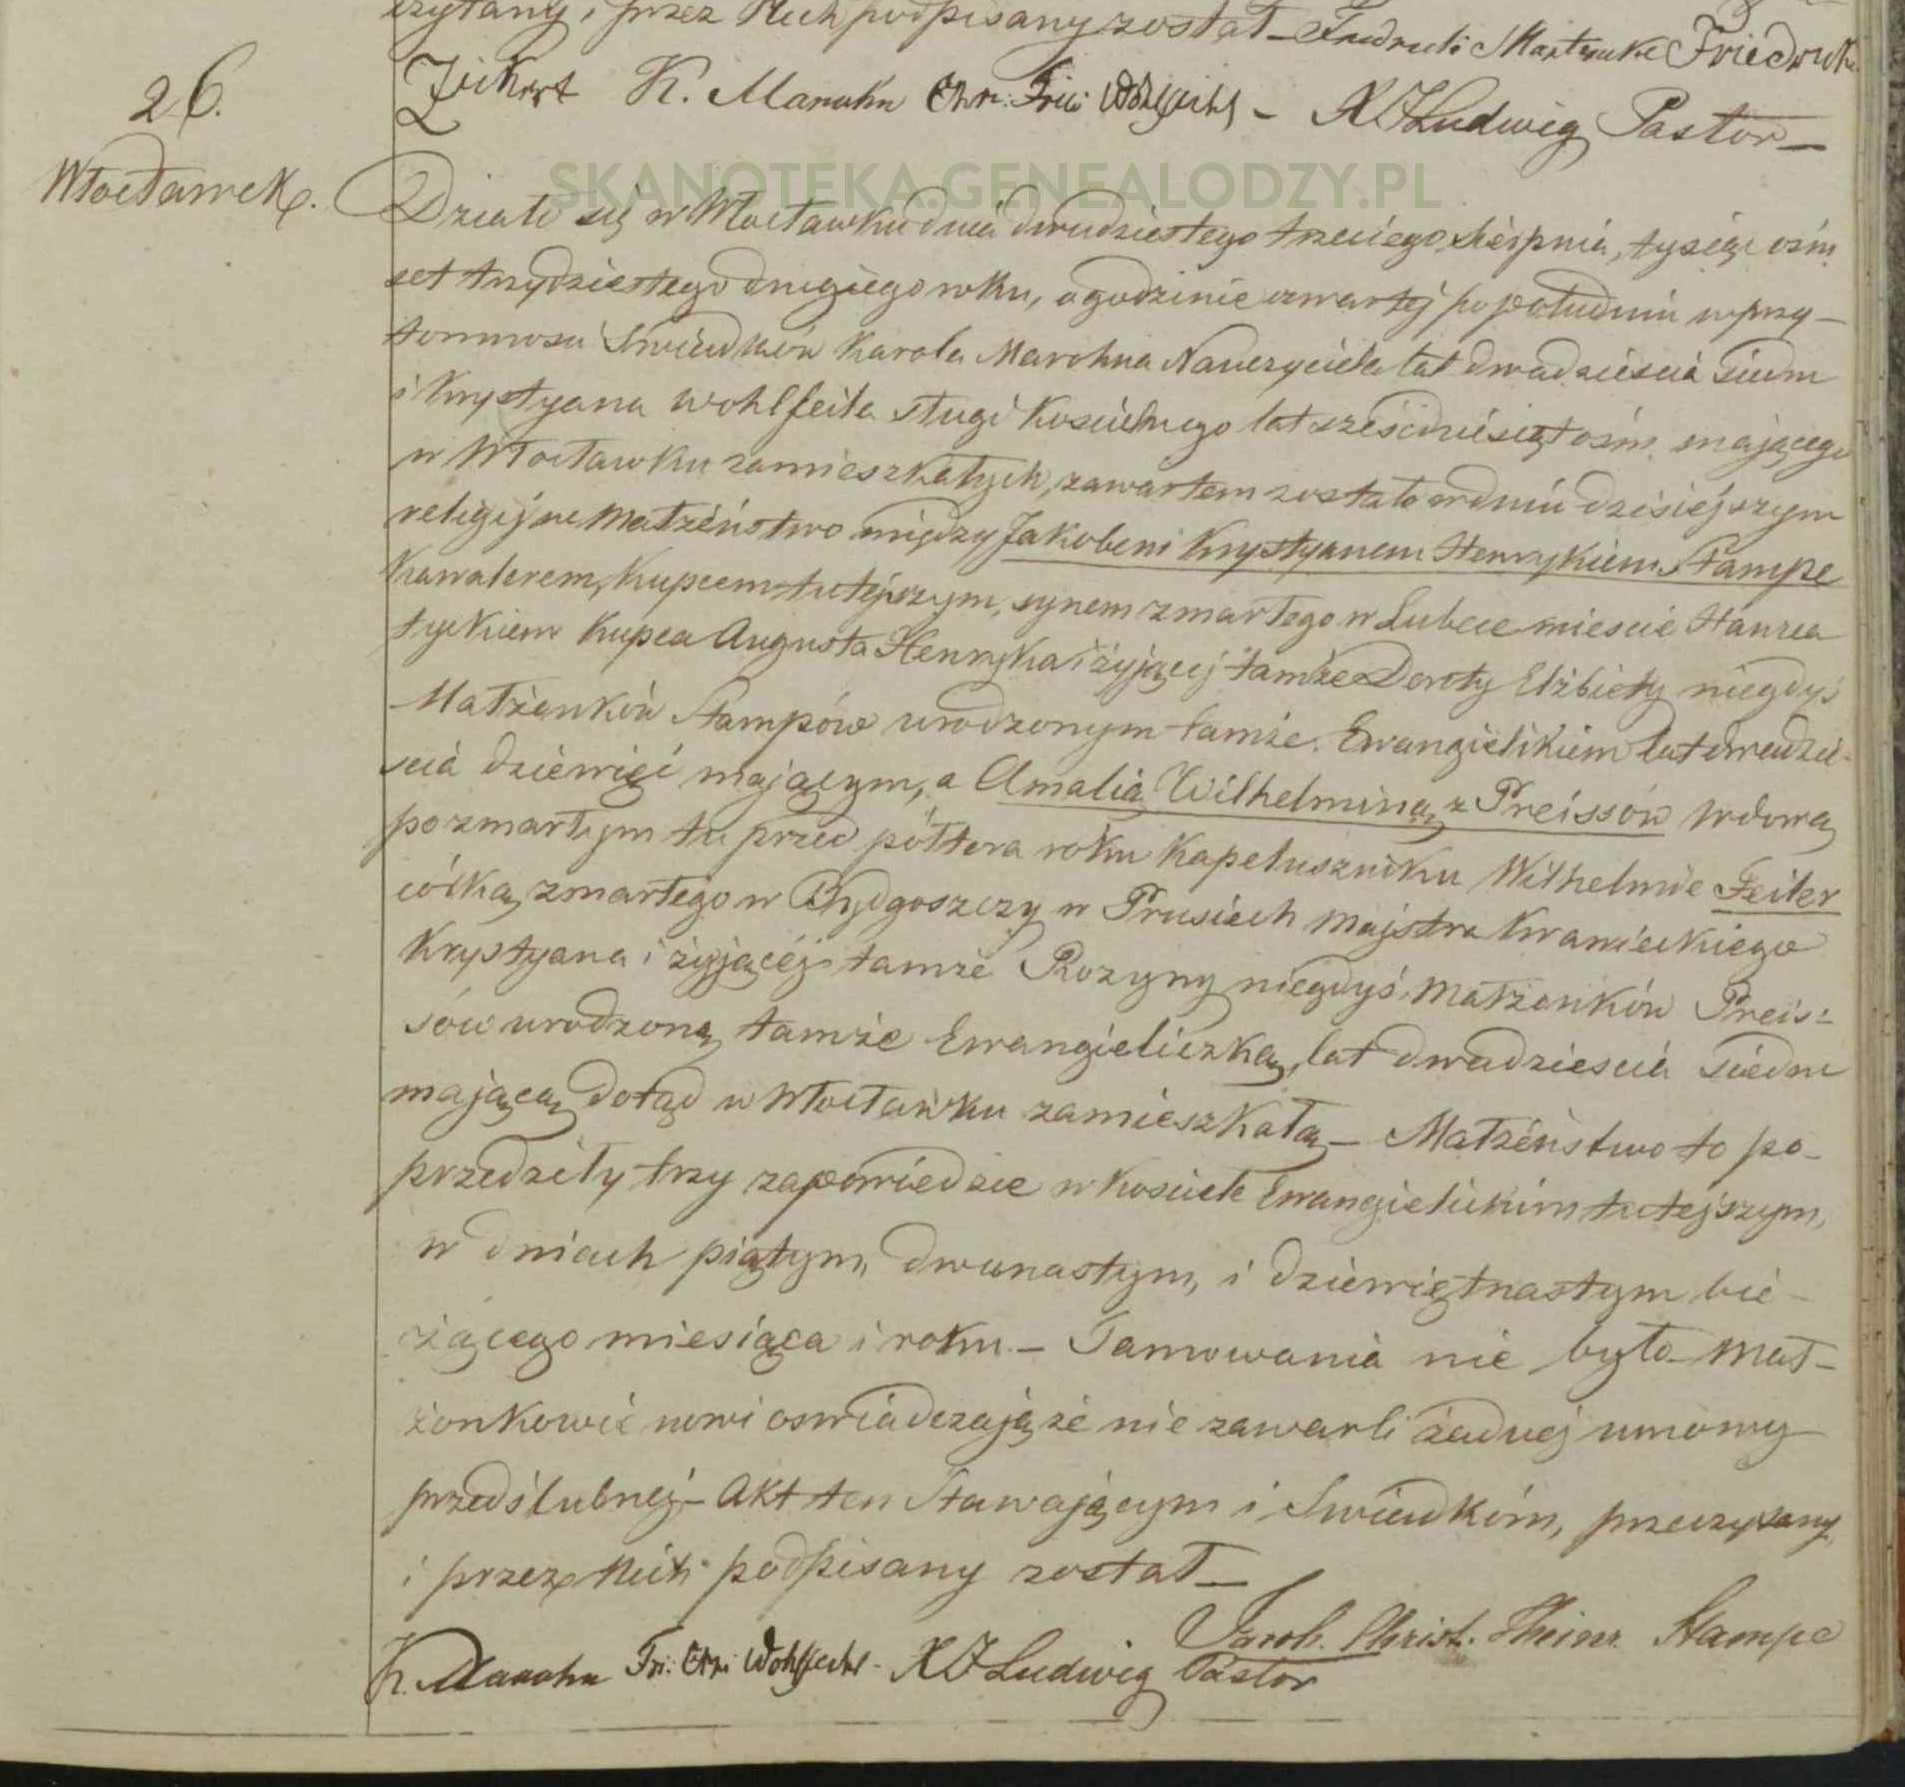 czytany i przez Nich podpisany został – Friedrich Friedrich
Zikert K. Marohn Chr: Frie: Wohlfeihl – KJLudwig Pastor –
26.
Włocławek.
SKANOTEKA.GENEALODZY.PL
Działo się w Włocławku dnia dwudziestego trzeciego Sierpnia, tysiąc ośm
set trzydziestego drugiego roku, o godzinie czwartej po południu w przy–
tomnosci Swiadków Karola Marohna Nauczyciela lat dwadziescia siedm
i Krystyana Wohlfeila sługi Kościelnego lat sześćdziesiąt ośm mającego
w Włocławku zamieszkałych, zawartem zostało w dniu dzisiejszym
religijne Małżeństwo między Jakobem Krystyanem Henrykiem Stampe
Kawalerem, Kupcem tutejszym, synem zmarłego w Lubece miescie Hanzea
tyckiem Kupca Augusta Henryka i żyjącej tamże Doroty Elżbiety niegdyś
Małżonków Stampów urodzonym tamże. Ewangielikiem lat dwadzie–
scia dziewięć mającym, a Amalią Wilhelminą z Preissów wdową
po zmarłym tu przed półtora roku Kapeluszniku Wilhelmie Feiler
córką zmarłego w Bydgoszczy w Prusiech majstra Krawieckiego
Krystyana i żyjącéj tamże Rozyny niegdyś Małżonków Preis:
sów urodzoną tamże Ewangieliczką, lat dwadziescia siedm
mającą dotąd w Włocławku zamieszkałą – Małżeństwo to po–
przedziły trzy zapowiedzie w Kosciele Ewangielickim tutejszym,
w dniach piątym, dwunastym, i dziewiętnastym bie–
żącego miesiąca i roku. – Tamowania nie było – Mał–
żonkowie nowi oswiadczają że nie zawarli żadnej umowy
przedślubnéj – Akt ten Stawającym i Swiadkóm, przeczytany
i przez Nich podpisany został –
Jacob. Christ. Heinr. Stampe
K. Marohn Fri: Chr: Wohlfeihl – KJLudwig Pastor